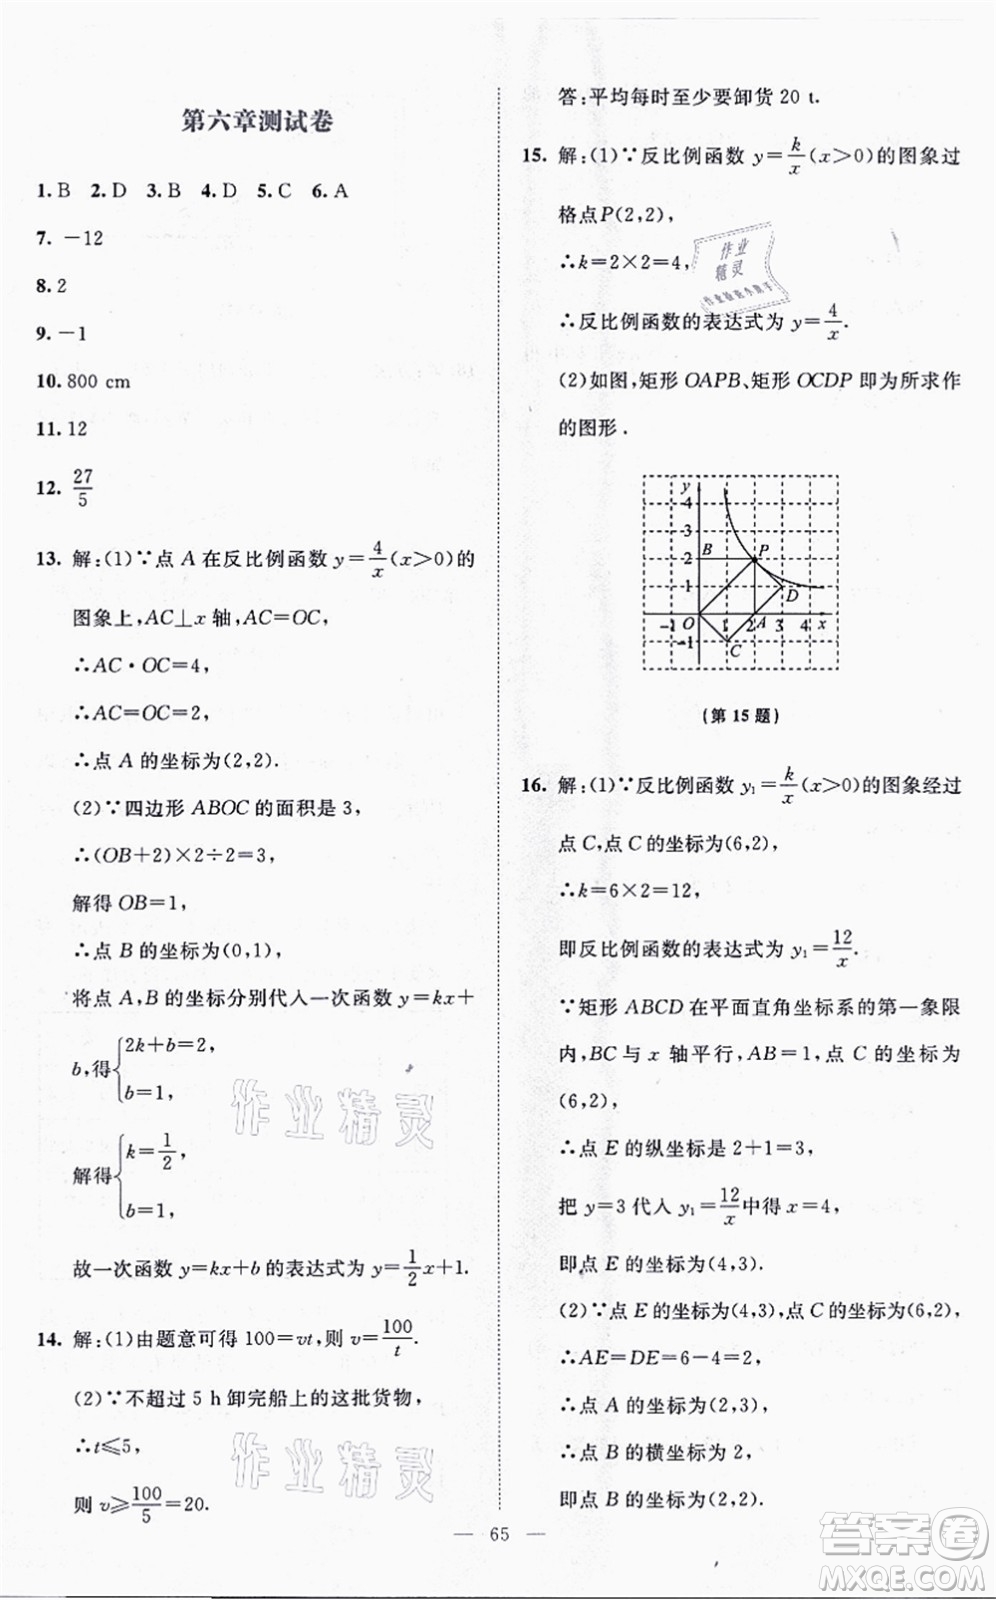 第六章测试卷
1. B 2. D 3. B 4. D 5. C 6. A
7. －12
8. 2
9. －1
10. 800 cm
11. 12
12. 27/5
13. 解:(1)∵点 A 在反比例函数 y＝4/x(x＞0)的
图象上,AC⊥x 轴,AC＝OC,
∴AC·OC＝4,
∴AC＝OC＝2,
∴点 A 的坐标为(2,2).
(2)∵四边形 ABOC 的面积是 3,
∴(OB＋2)×2÷2＝3,
解得 OB＝1,
∴点 B 的坐标为(0,1),
将点 A,B 的坐标分别代入一次函数 y＝kx＋
b,得{2k＋b＝2,
b＝1,
解得{k＝1/2,
b＝1,
故一次函数 y＝kx＋b 的表达式为 y＝1/2x＋1.
14. 解:(1)由题意可得 100＝vt,则 v＝100/t.
(2)∵不超过 5 h 卸完船上的这批货物,
∴t≤5,
则 v≥100/5＝20.
答:平均每时至少要卸货 20 t.
15. 解:(1)∵反比例函数 y＝k/x(x＞0)的图象过
格点P(2,2),
∴k＝2×2＝4,
∴反比例函数的表达式为 y＝4/x.
(2)如图,矩形 OAPB、矩形 OCDP 即为所求作
的图形.
y
4
3
2 B P
1 D
－1 O 1 2 A 3 4 x
－1 C
(第 15 题)
16. 解:(1)∵反比例函数 y₁＝k/x(x＞0)的图象经过
点 C,点 C 的坐标为(6,2),
∴k＝6×2＝12,
即反比例函数的表达式为 y₁＝12/x.
∵矩形 ABCD 在平面直角坐标系的第一象限
内,BC 与 x 轴平行,AB＝1,点 C 的坐标为
(6,2),
∴点 E 的纵坐标是 2＋1＝3,
把 y＝3 代入 y₁＝12/x中得 x＝4,
即点 E 的坐标为(4,3).
(2)∵点 E 的坐标为(4,3),点 C 的坐标为(6,2),
∴AE＝DE＝6－4＝2,
∴点 A 的坐标为(2,3),
∴点 B 的横坐标为 2,
即点 B 的坐标为(2,2),
— 65 —
作业精灵
作业精灵
作业
精灵
答案圈
MXQE.COM